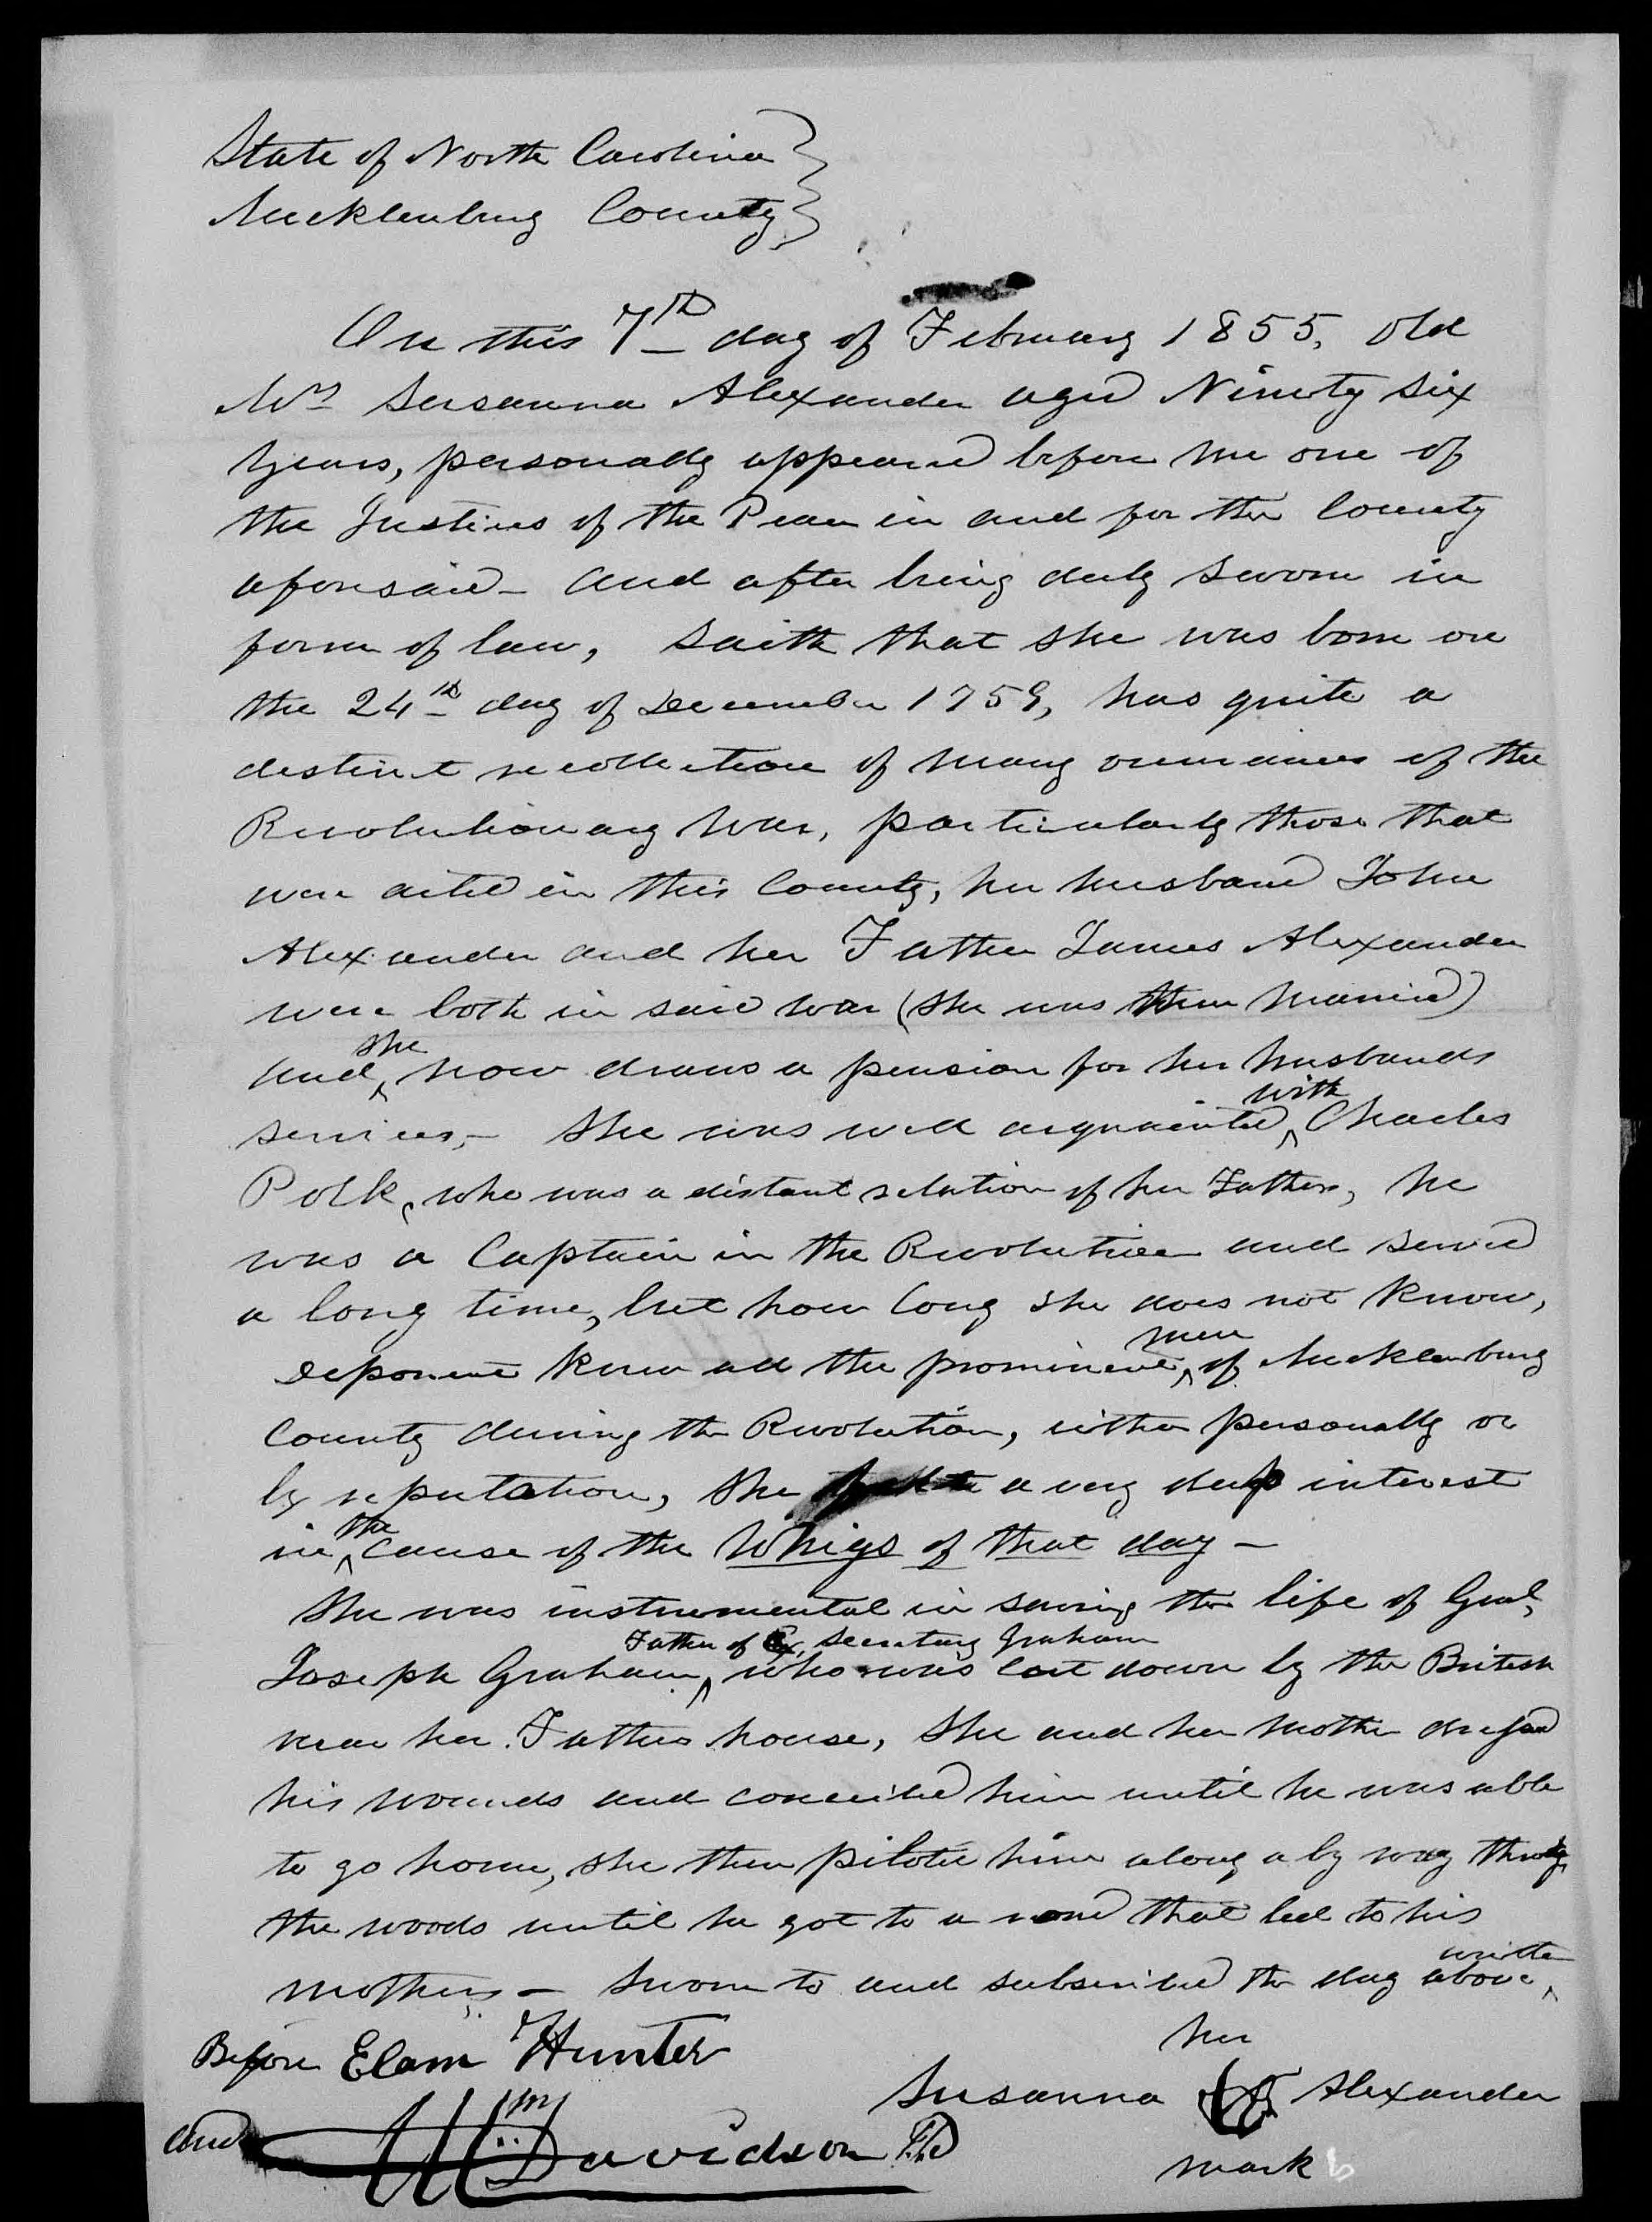 State of North Carolina
Mecklenburg County
On this 7th day of February 1855, Old
Mrs Susanna Alexander aged Ninety Six
Years, personally appeared before me one of
the Justices of the Peace in and for the County
aforesaid - and after being duly sworn in
form of law, Saith that she was born on
the 24th day of December 1759, has quite a
destinct recollection of many occurrances of the
Revolutionary War, particularly those that
were acted in this County, her husband John
Alexander and her Father James Alexander
were both in said war (she was then married)
she
And ^ now draws a pension for her husbands
with
services, - She was well acquainted ^ Charles
Polk, who was a distant relation of her Father, he
was a Captain in the Revolution and served
a long time, but how long she does not know,
men
Deponent knew all the prominent ^ of Mecklenburg
County during the Revolution, either personally or
by reputation, She felt a very deep interest
the
in ^ cause of the Whigs of that day -
She was instrumental in saving the life of Genl,
Father of Ex, Secretary Graham
Joseph Graham, ^ who was cut down by the British
near her Fathers house, She and her mother dressed
his wounds and conceiled him until he was able
to go home, she then piloted him along a by way through
the woods until he got to a road that led to his
written
mothers - Sworn to and subscribed the day above ^
Before Elam Hunter
her
Susanna Alexander
and Wm Davidson
mark